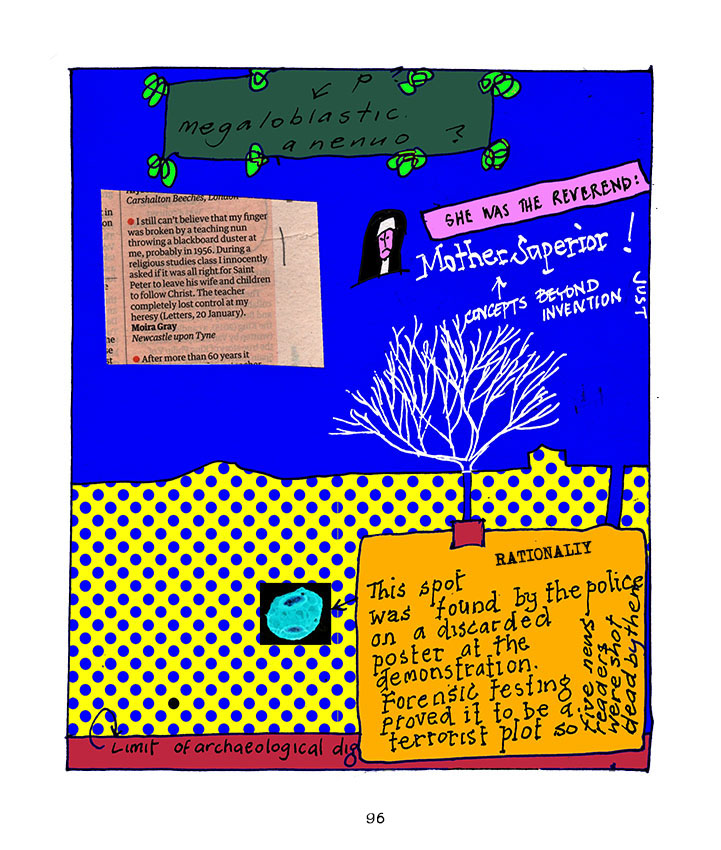 megaloblastic.
a nenuo ?
Carshalton Beeches, London
in
on
● I still can't believe that my finger
was broken by a teaching nun
throwing a blackboard duster at
me, probably in 1956. During a
religious studies class I innocently
asked if it was all right for Saint
Peter to leave his wife and children
to follow Christ. The teacher
completely lost control at my
heresy (Letters, 20 January).
Moira Gray
Newcastle upon Tyne
he
se
st
● After more than 60 years it
SHE WAS THE REVEREND:
Mother Superior !
JUST
CONCEPTS BEYOND
INVENTION
RATIONALIY
This spot
was found by the police
on a discarded
poster at the
demonstration.
Forensic testing
proved it to be a
terrorist plot so
five news-
readers
were shot
dead by them
Limit of archaeological dig
96